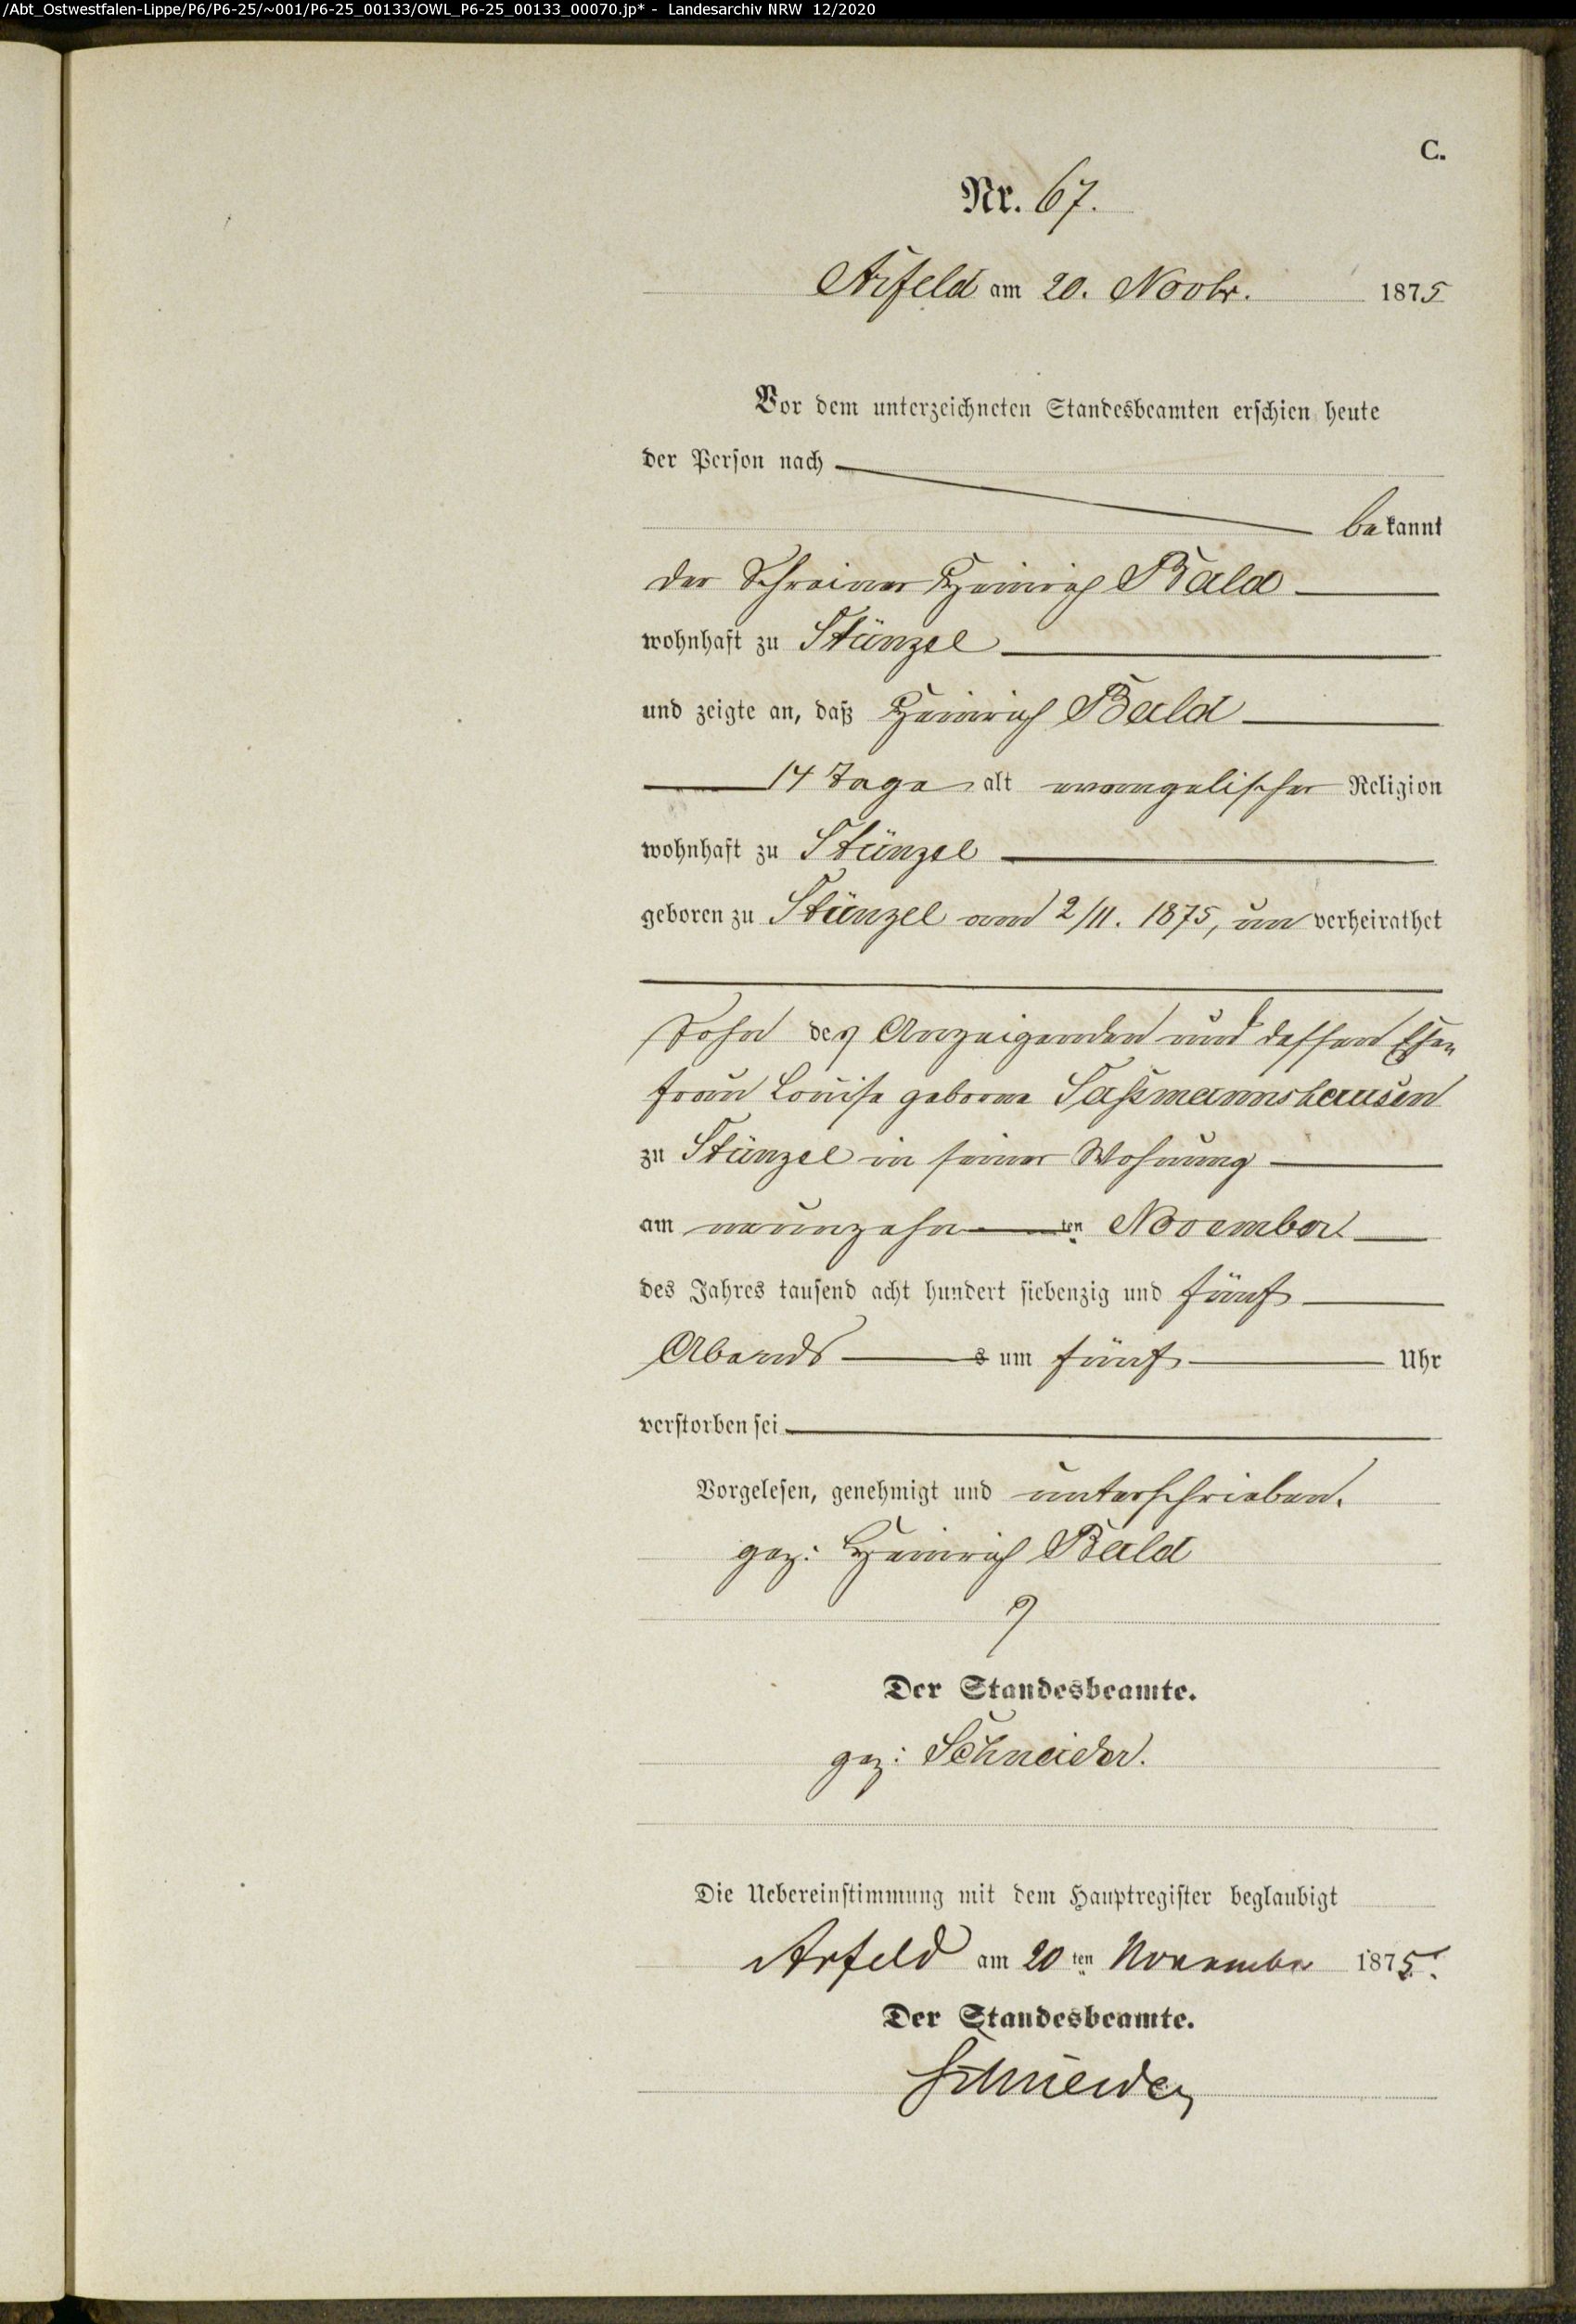 /Abt_Ostwestfalen-Lippe/P6/P6-25/~001/P6-25_00133/OWL_P6-25_00133_00070.jp* - Landesarchiv NRW 12/2020
C.
Nr. 67.
Arfeld am 20. Novbr. 1875
Vor dem unterzeichneten Standesbeamten erschien heute
der Person nach
bekannt
der Schreiner Heinrich Bald
wohnhaft zu Stünzel
und zeigte an, daß Heinrich Bald
14 Tage alt evangelischer Religion
wohnhaft zu Stünzel
geboren zu Stünzel am 2/11. 1875, un verheirathet
Sohn des Anzeigenden und dessen Ehe
frau Louise geborne Saßmannshausen
zu Stünzel in seiner Wohnung
am neunzehn ten November
des Jahres tausend acht hundert siebenzig und fünf
Abends s um fünf Uhr
verstorben sei
Vorgelesen, genehmigt und unterschrieben.
gez: Heinrich Bald
Der Standesbeamte.
gez: Schneider.
Die Uebereinstimmung mit dem Hauptregister beglaubigt
Arfeld am 20 ten November 1875.
Der Standesbeamte.
Schneider